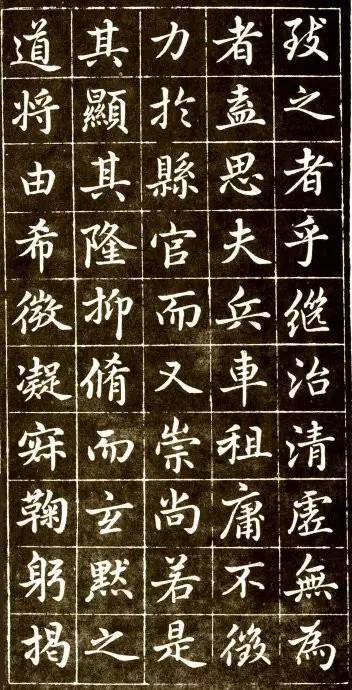 致之者乎繼治清虛無為
者盍思夫兵車租庸不徵
力於縣官而又崇尚若是
其顯其隆抑脩而玄默之
道將由希微凝寂鞠躬揭